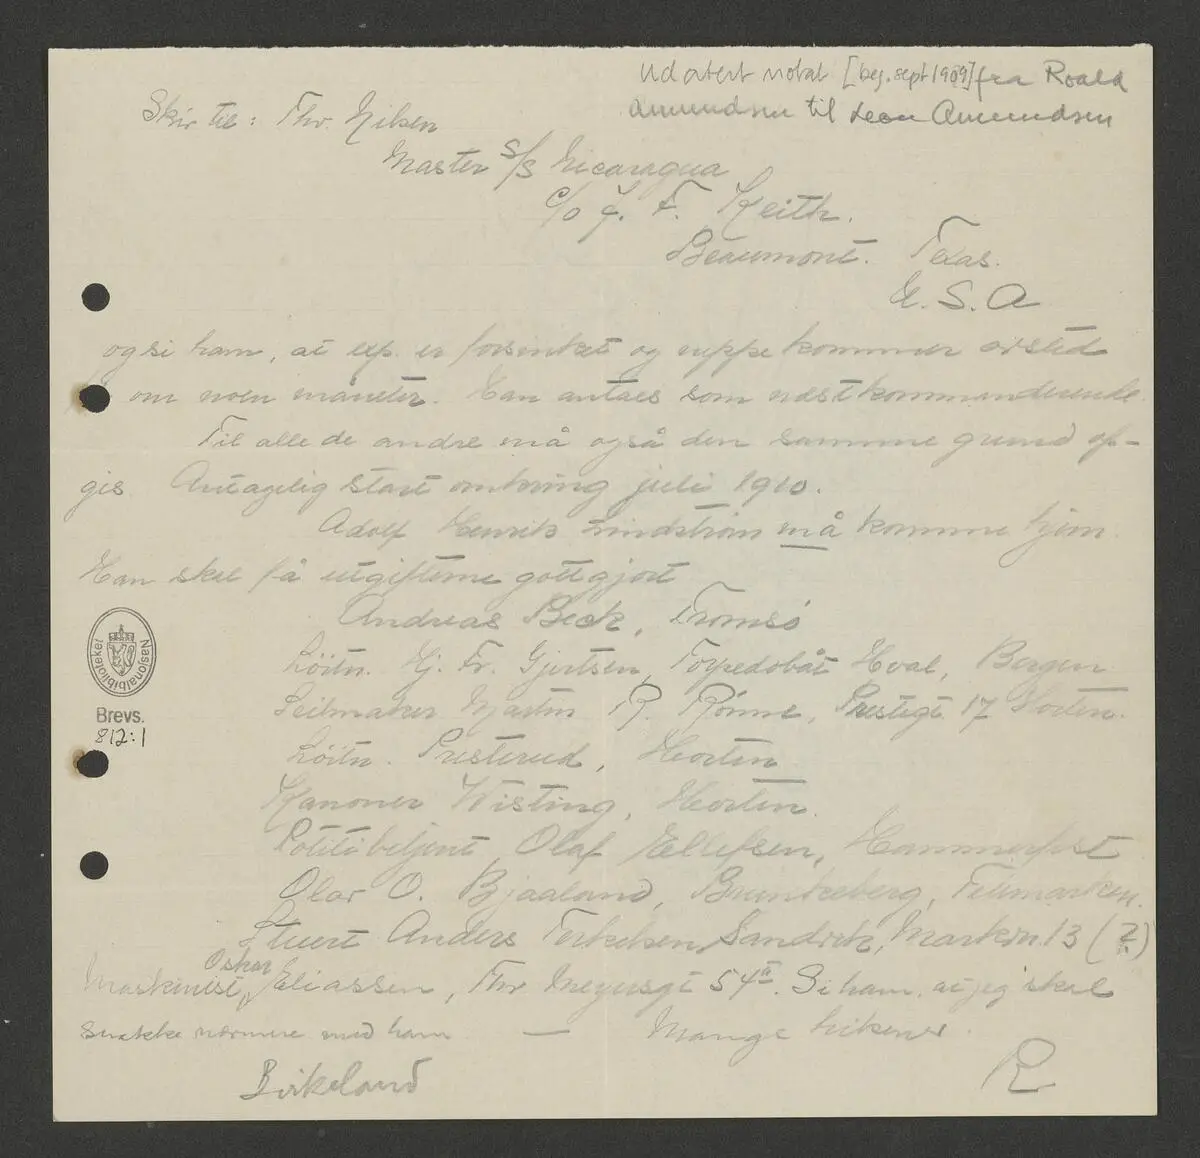 Udatert notat [beg. sept 1909] fra Roald
Amundsen til Leon Amundsen
Skriv til: Thv. Nilsen
Master S/S Nicaragua
c/o J. F. Keith.
Beaumont. Texas.
U. S. A
og si ham, at exp. er forsinket og neppe kommer avsted
om noen måneter. Han antaes som næstkommanderende.
Til alle de andre må også den samme grund op-
gis. Antagelig start omkring juli 1910.
Adolf Henrik Lindstrøm må komme hjem.
Han skal få utgifterne gottgjort
Andreas Beck, Tromsö
Löitn. Hj. Fr. Gjertsen, Torpedobåt Hval, Bergen
Seilmaker Martin R. Rönne, Prestegt. 17 Horten.
Löitn. Presterud, Horten
Kanoner Wisting, Horten.
Politibetjent, Olaf Ellefsen, Hammerfest
Olav O. Bjaaland, Brunkeberg, Telemarken.
Stuert Anders Terkelsen, Sandvik, Markvn. 13 (?)
Maskinist, Oskar Eliassen, Thv Meyersgt 54II. Si ham, at jeg skal
snakke nærmere med ham — Mange hilsener.
Birkeland R
Nasjonalbiblioteket
Brevs.
812:1